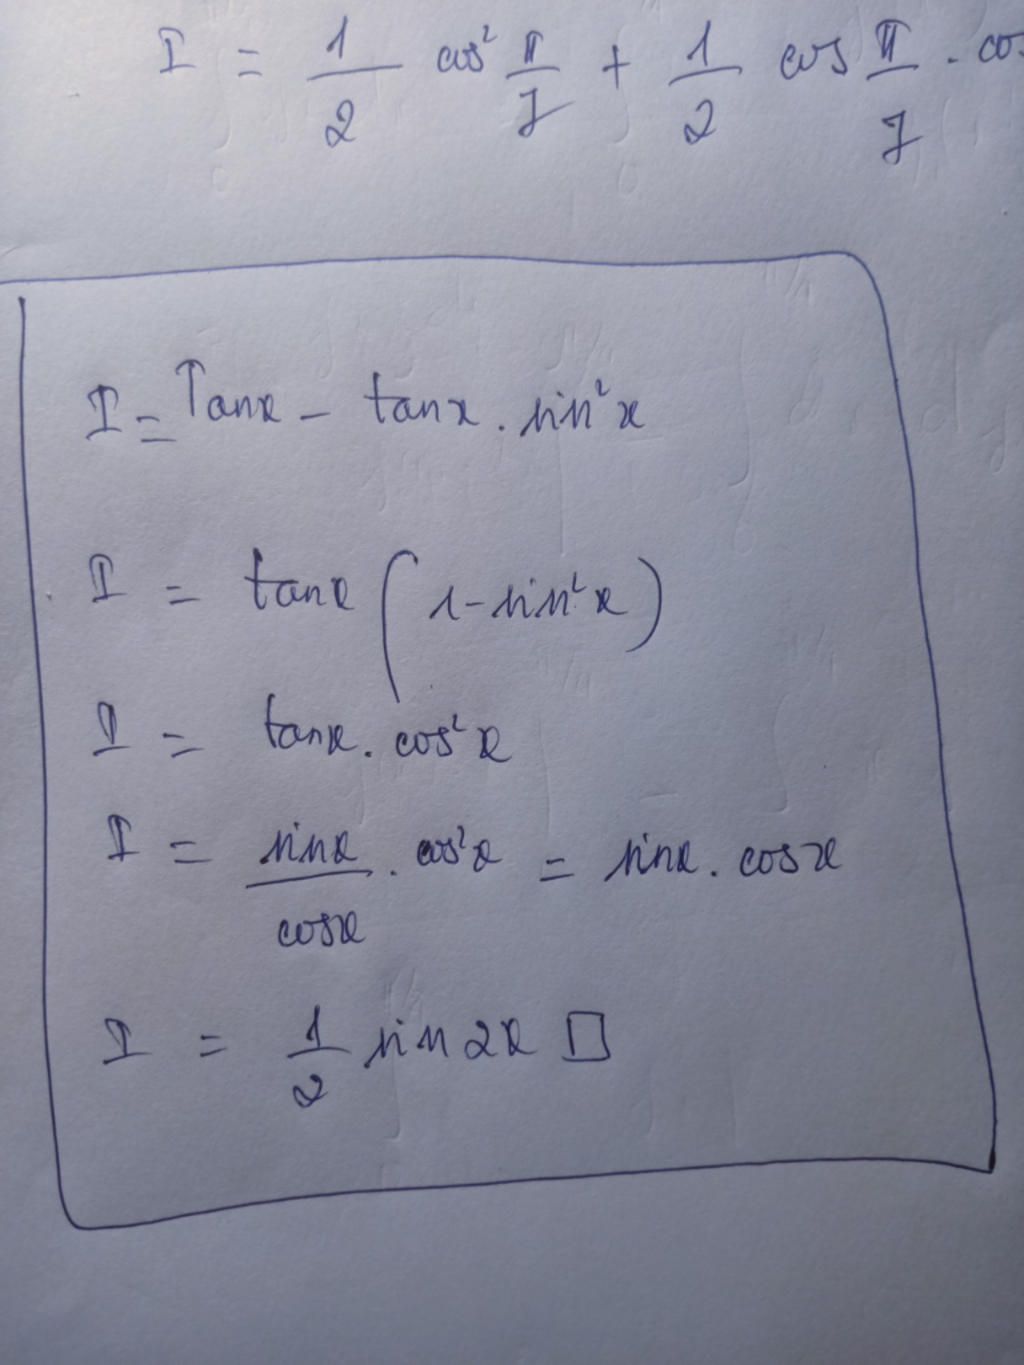 I = 1/2 cos² π/7 + 1/2 cos π/7 . co
I = Tanx - tanx . sin²x
I = tanx (1-sin²x)
I = tanx . cos²x
I = sinx/cosx . cos²x = sinx . cosx
I = 1/2 sin 2x □